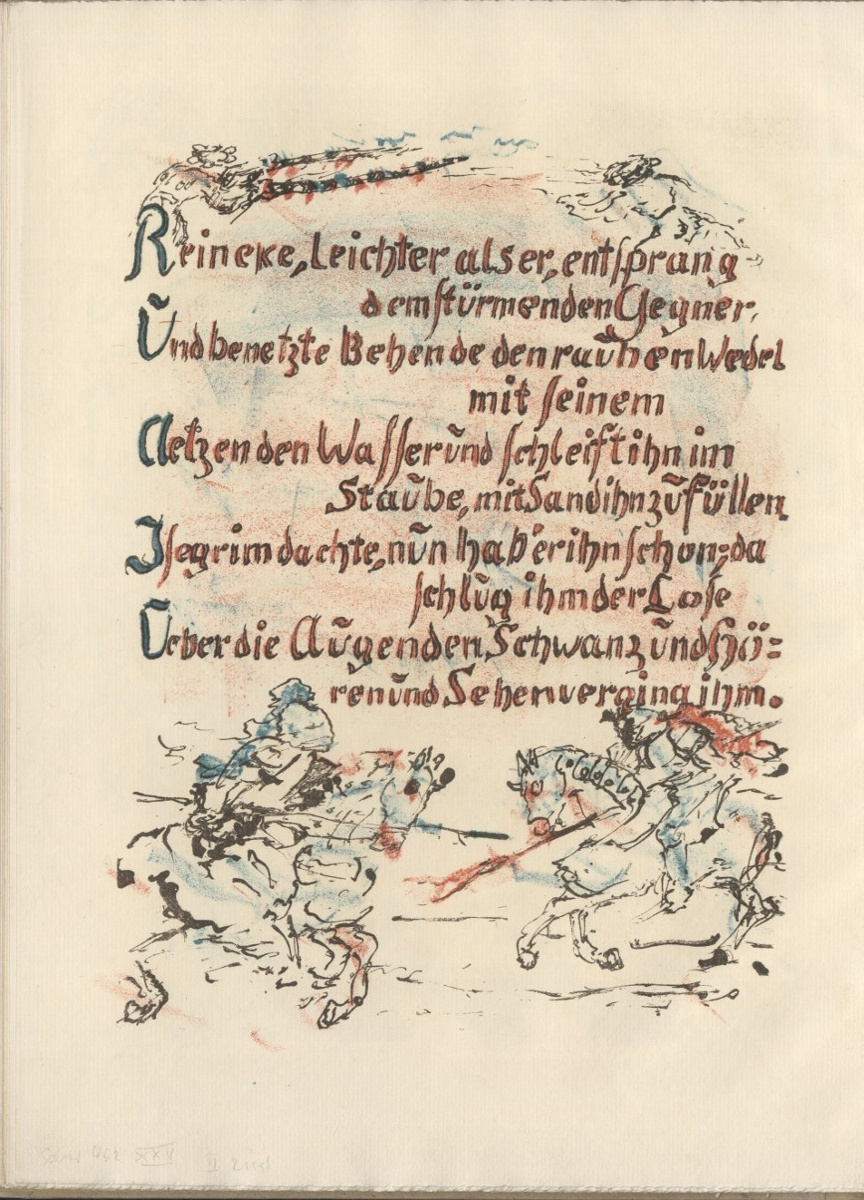 Reineke, leichter als er, entsprang
dem stürmenden Gegner,
Und benetzte Behende den rauhen Wedel
mit seinem
Aetzenden Wasser und schleift ihn im
Staube, mit Sand ihn zu füllen.
Isegrim dachte, nun hab' er ihn schon; da
schlug ihm der Lose
Ueber die Augen den Schwanz und Hö=
ren und Sehen verging ihm.
XXV